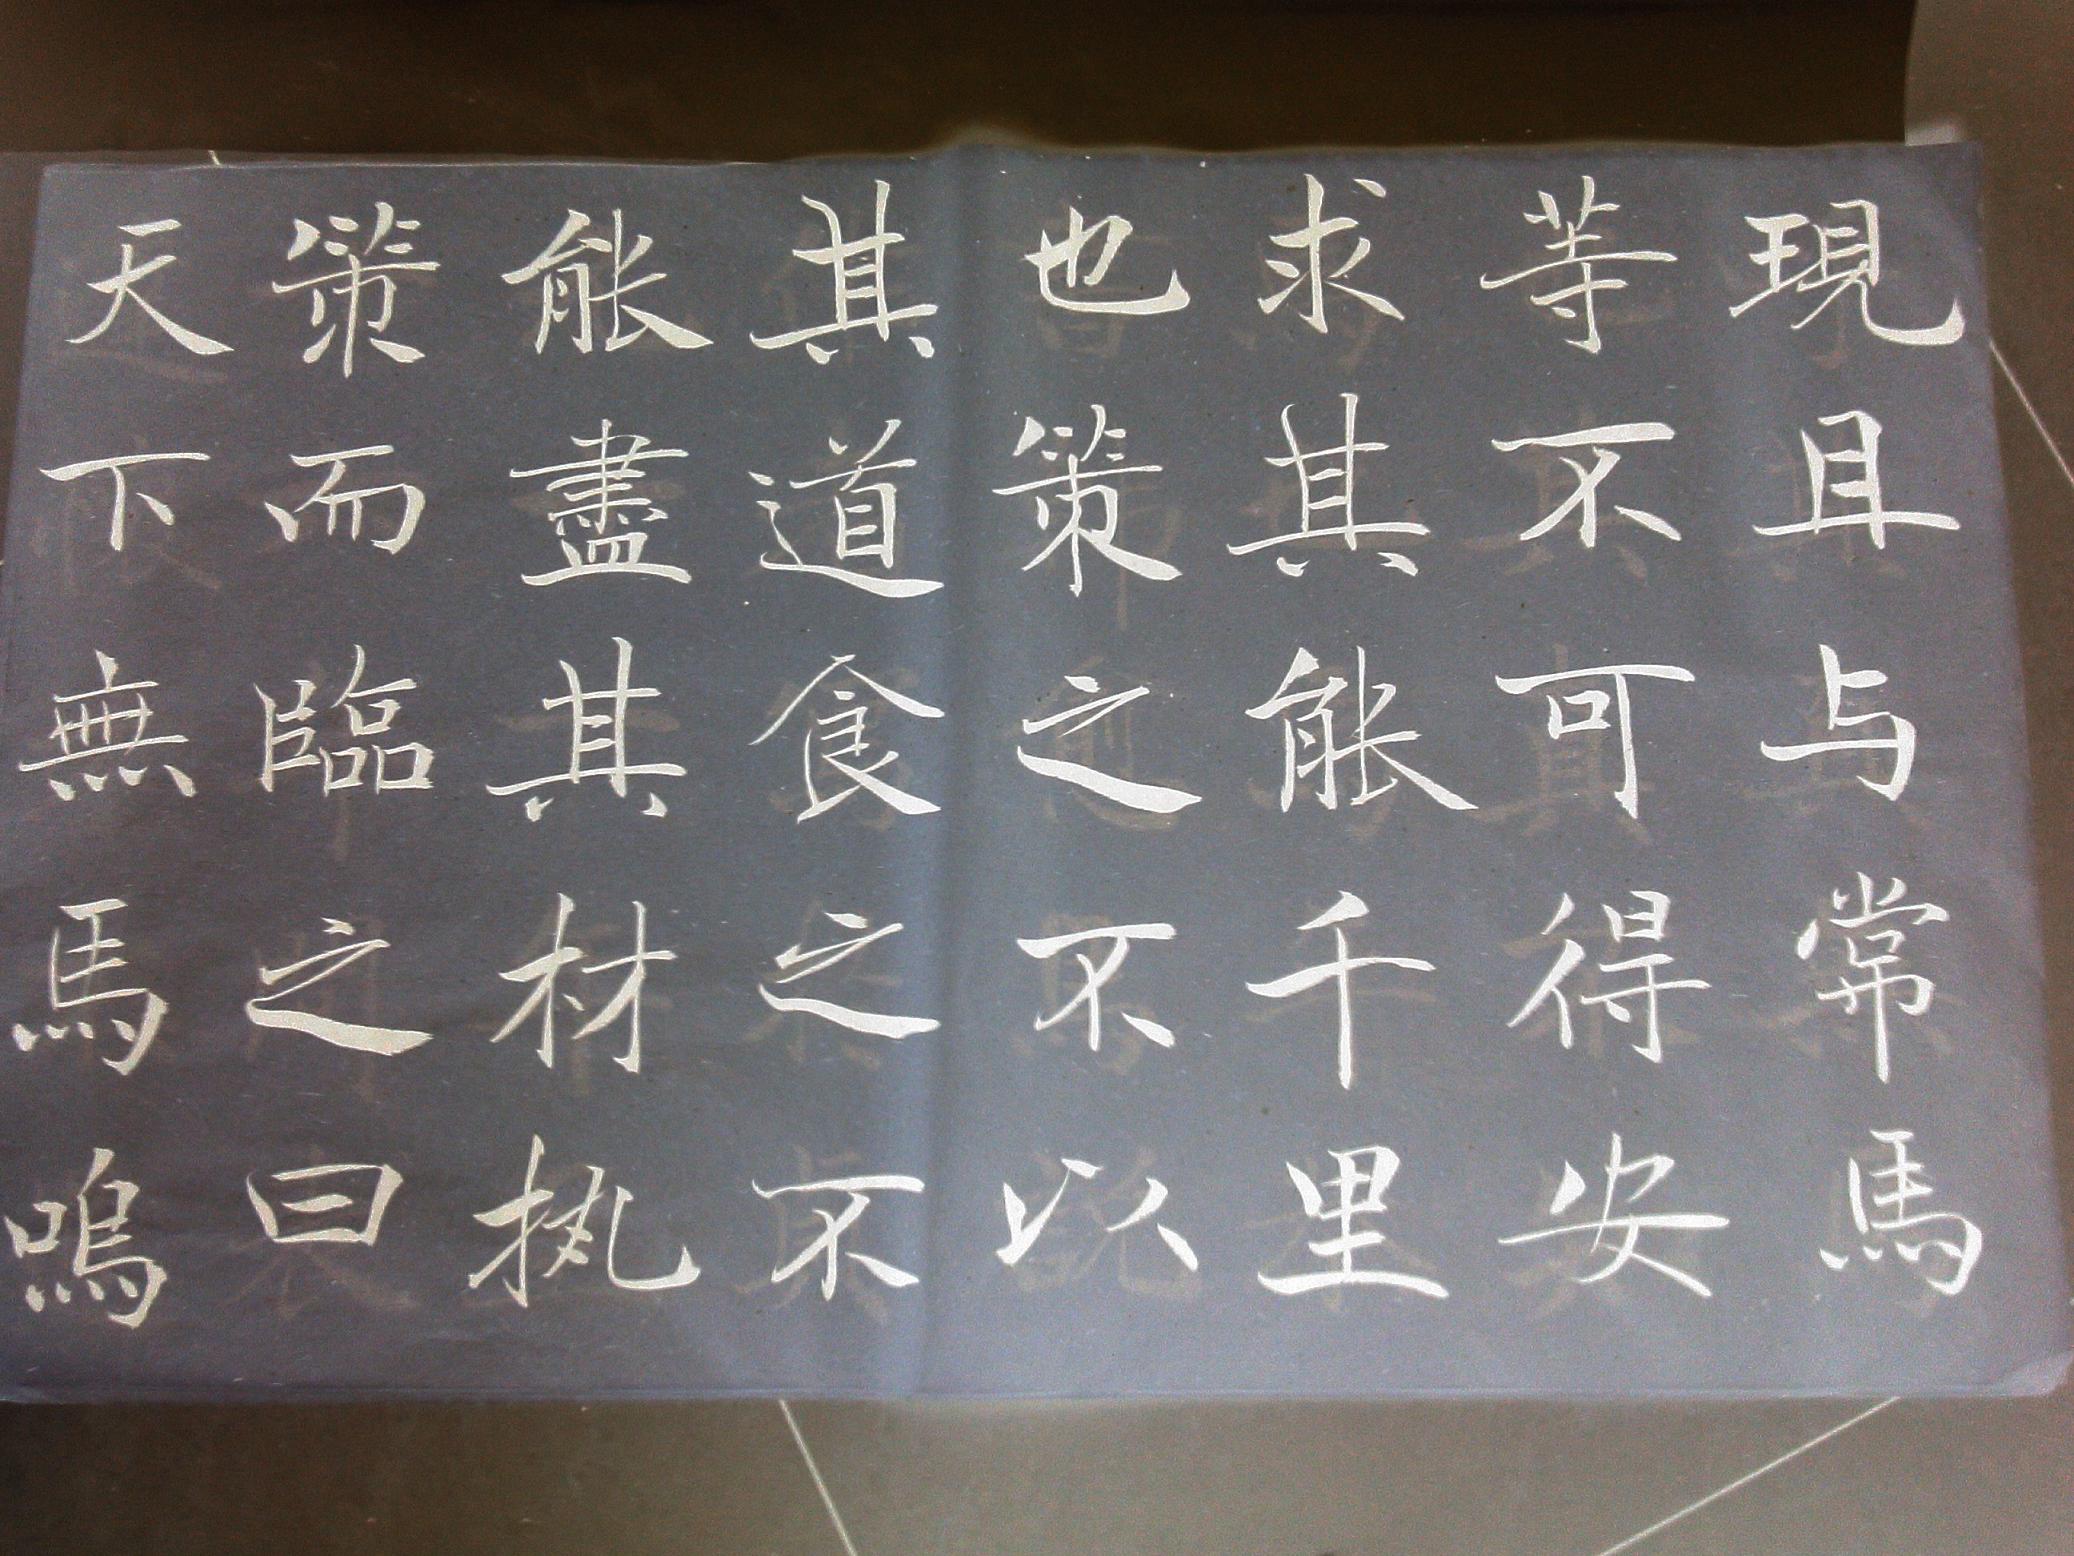 現且与常馬
等不可得安
求其能千里
也策之不以
其道食之不
能盡其材执
策而臨之曰
天下無馬嗚